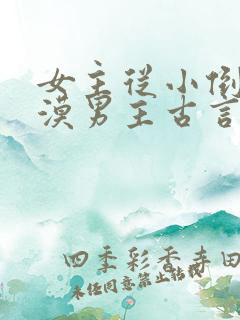 女主从小倒
漠男主古言
四季彩香寺田
未经同意禁止转载